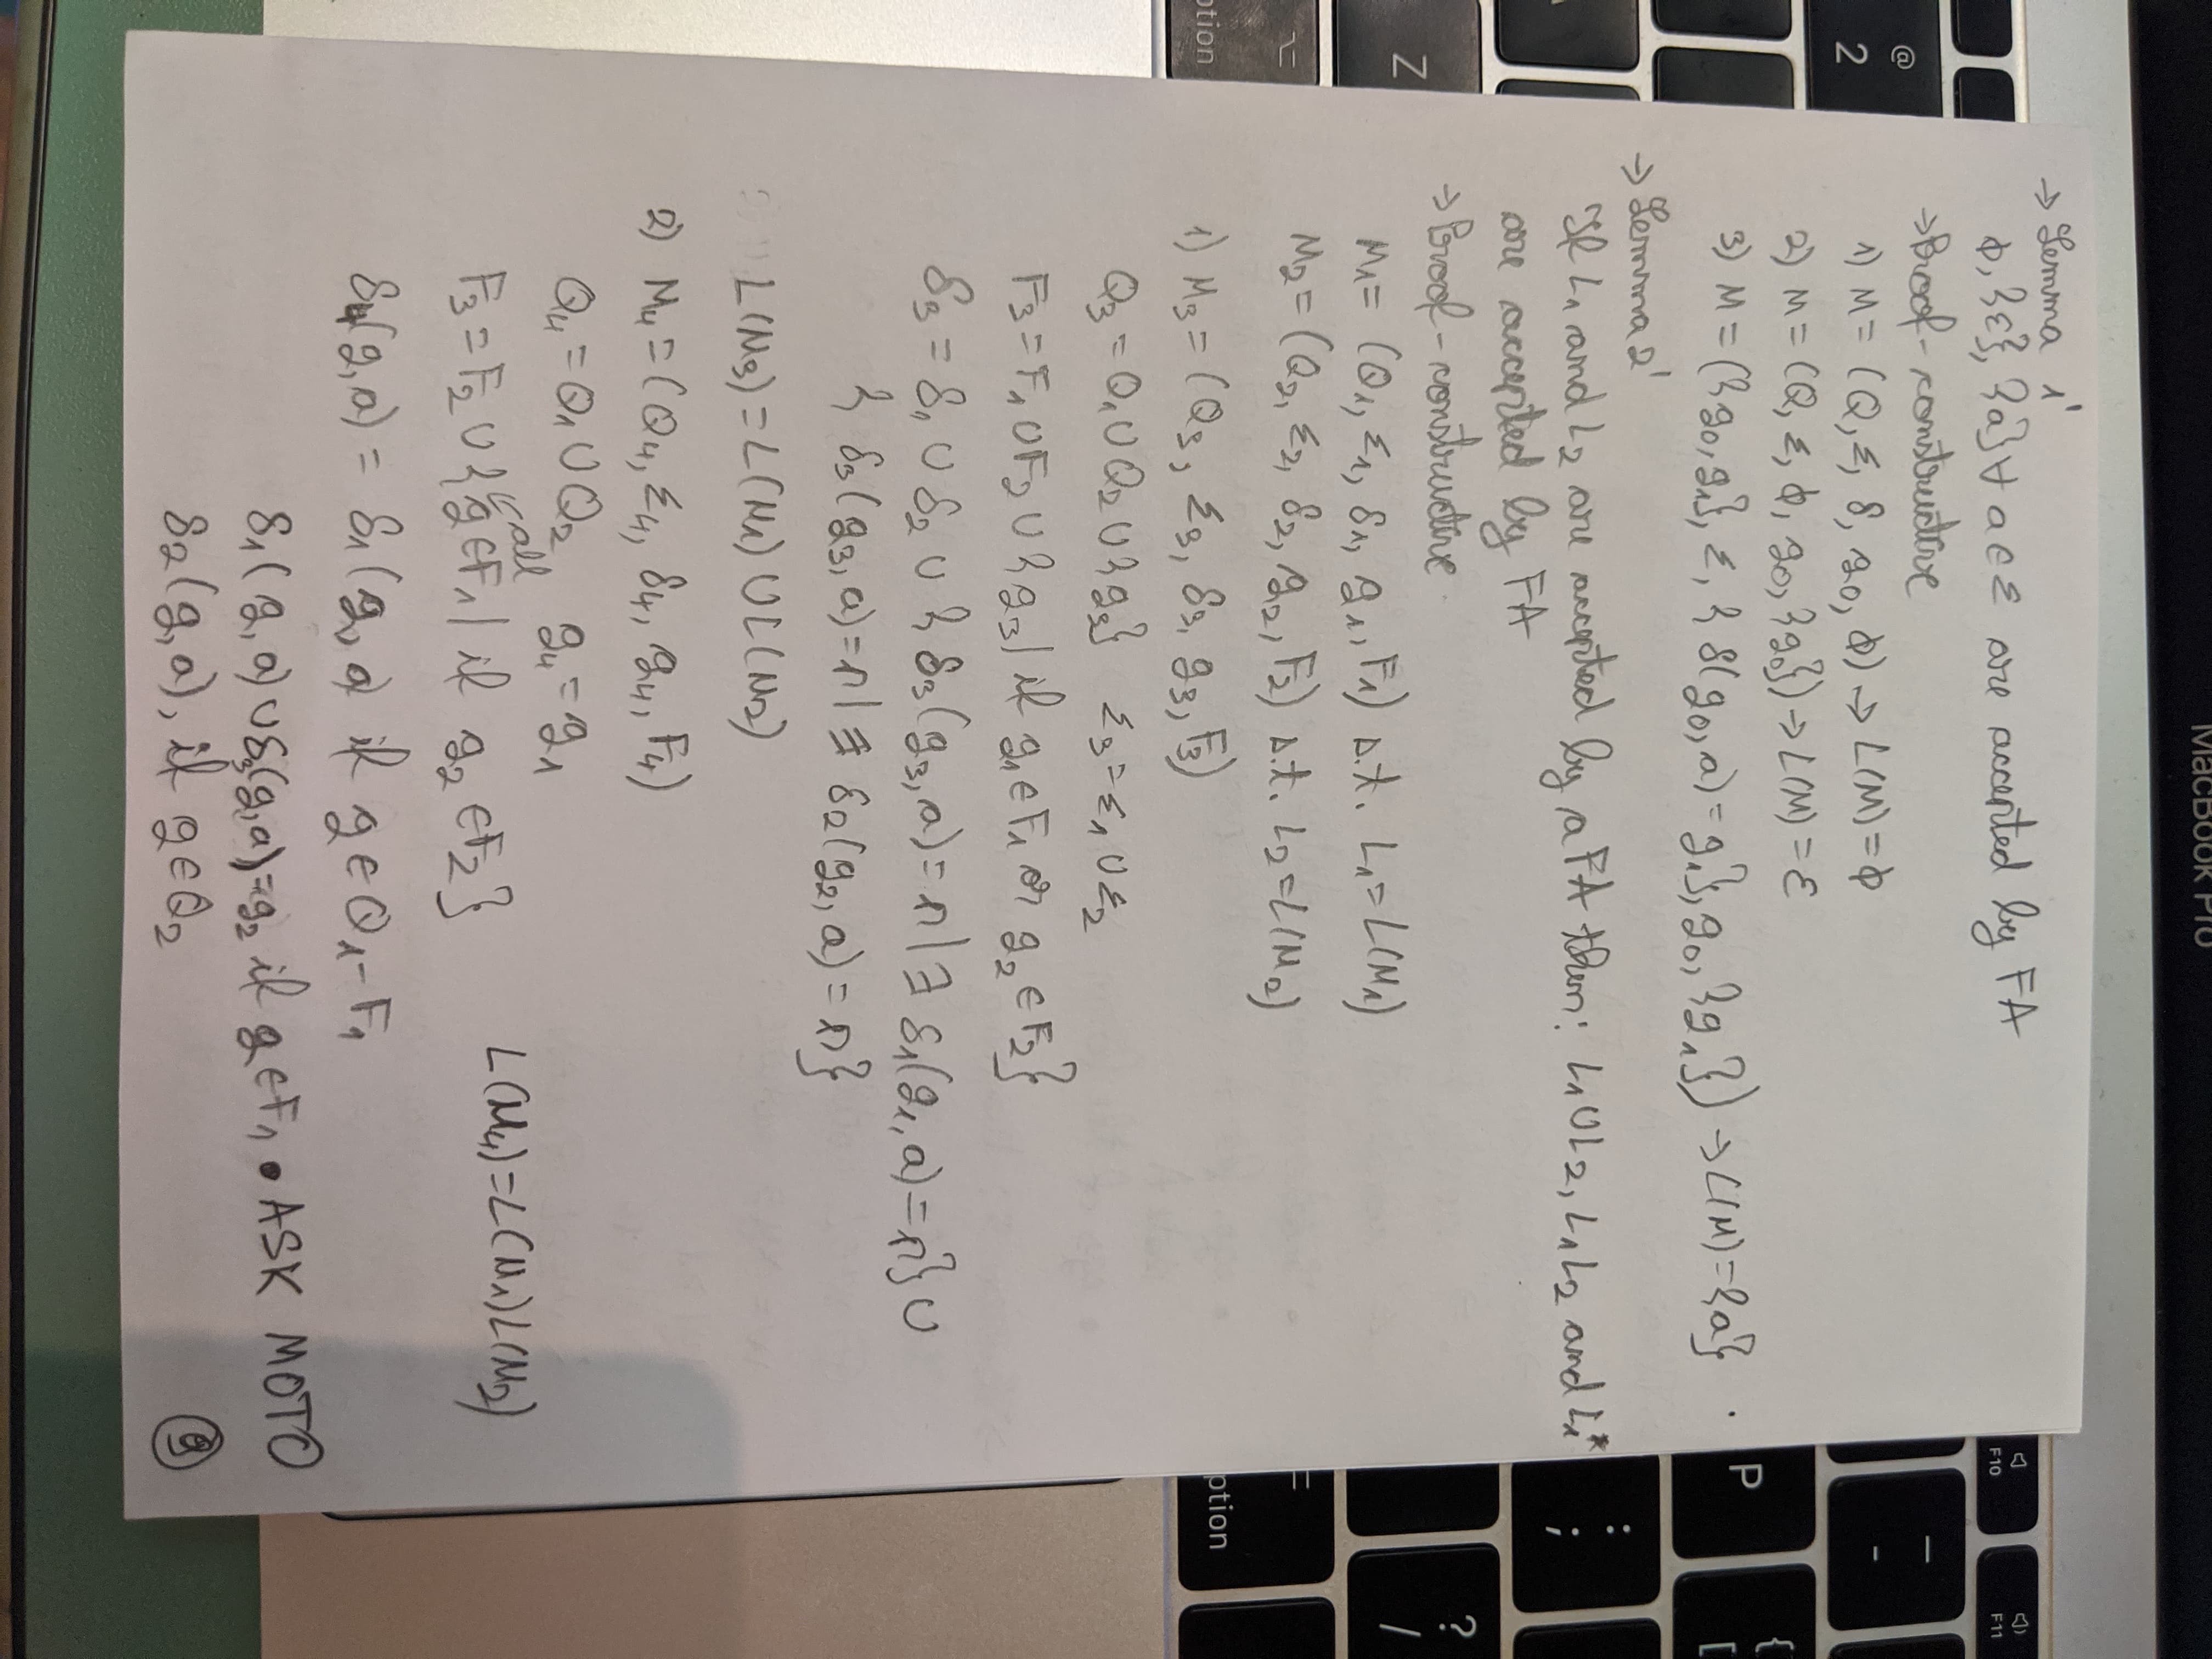 → Lemma 1'
ϕ, {ε}, {a} ∀ a ∈ Σ are accepted by FA
→ Proof - constructive
1) M = (Q, Σ, δ, q0, ϕ) → L(M) = ϕ
2) M = (Q, Σ, ϕ, q0, {q0}) → L(M) = ε
3) M = ({q0, q1}, Σ, {δ(q0, a) = q1}, q0, {q1}) → L(M) = {a}
→ Lemma 2'
If L1 and L2 are accepted by a FA then: L1 ∪ L2, L1L2 and L1*
are accepted by FA
→ Proof - constructive
M1 = (Q1, Σ1, δ1, q1, F1) s.t. L1 = L(M1)
M2 = (Q2, Σ2, δ2, q2, F2) s.t. L2 = L(M2)
1) M3 = (Q3, Σ3, δ3, q3, F3)
Q3 = Q1 ∪ Q2 ∪ {q3} Σ3 = Σ1 ∪ Σ2
F3 = F1 ∪ F2 ∪ {q3 | if q1 ∈ F1 or q2 ∈ F2}
δ3 = δ1 ∪ δ2 ∪ {δ3(q3, a) = n | ∃ δ1(q1, a) = n} ∪
{δ3(q3, a) = n | ∃ δ2(q2, a) = n}
L(M3) = L(M1) ∪ L(M2)
2) M4 = (Q4, Σ4, δ4, q4, F4)
Q4 = Q1 ∪ Q2 q4 = q1
all
F3 = F2 ∪ {q ∈ F1 | if q2 ∈ F2} L(M4) = L(M1)L(M2)
δ4(q, a) = δ1(q, a if q ∈ Q1 - F1
δ1(q, a) ∪ δ3(q, a) = q2 if q ∈ F1 • ASK MOTO
δ2(q, a), if q ∈ Q2
MacBook Pro
@
2
Z
⌥
option
P
:
;
?
/
{
[
_
-
=
option
F10
F11